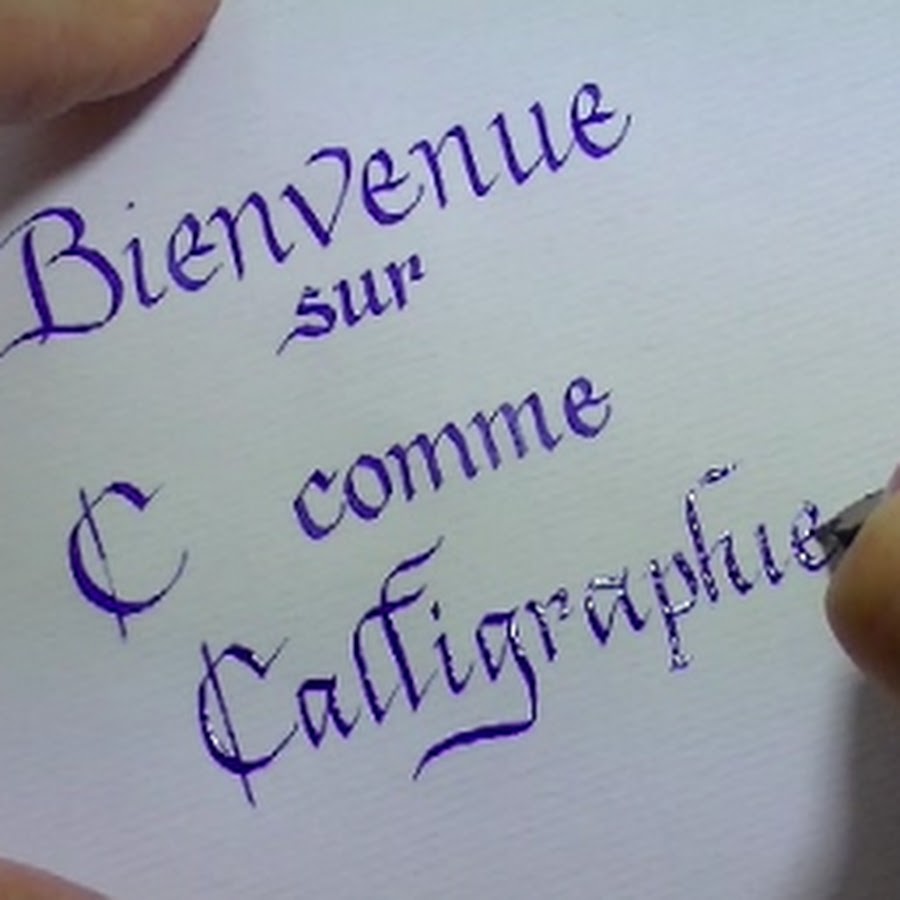 Bienvenue
sur
C comme
Calligraphie